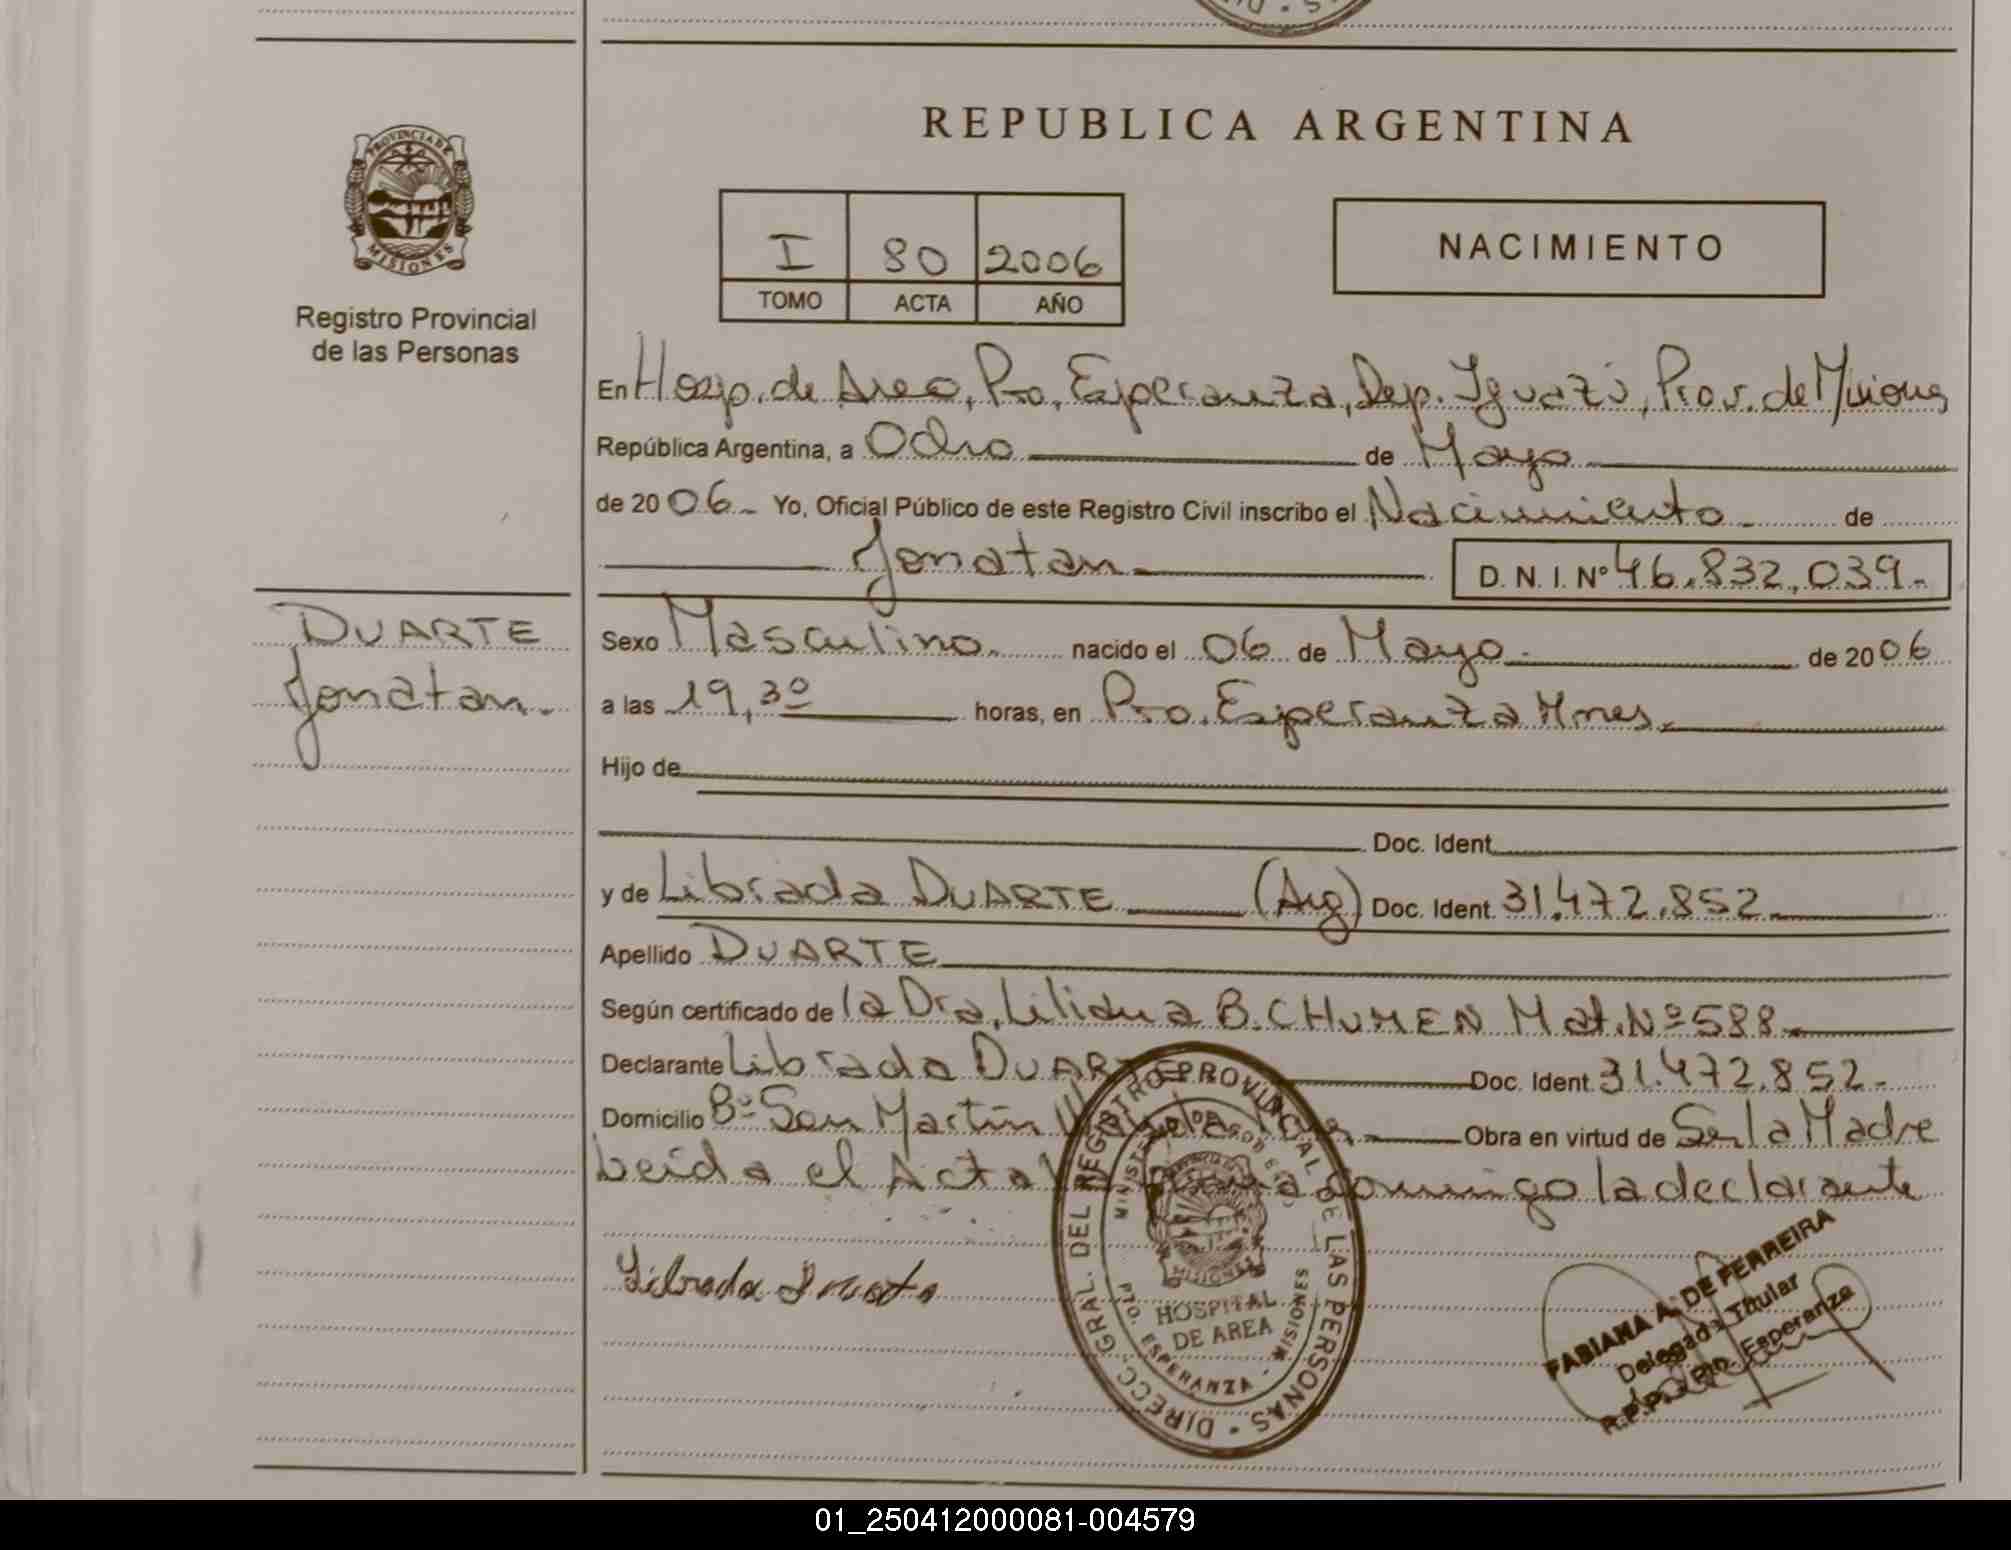 REPUBLICA ARGENTINA
PROVINCIA DE
MISIONES
Registro Provincial
de las Personas
I 80 2006
TOMO ACTA AÑO
NACIMIENTO
En Hosp. de Area, Pto. Esperanza, Dep. Iguazú, Prov. de Misiones
República Argentina, a Ocho de Mayo
de 2006 Yo, Oficial Público de este Registro Civil inscribo el Nacimiento de
Jonatan
D. N. I. Nº 46.832.039.-
DUARTE
Jonatan.
Sexo Masculino. nacido el 06 de Mayo de 2006
a las 19,30 horas, en Pto. Esperanza Mnes.
Hijo de
Doc. Ident.
y de Librada DUARTE (Arg) Doc. Ident. 31.472.852
Apellido DUARTE
Según certificado de la Dra. Liliana B. CHUMEN Mat. Nº 588
Declarante Librada DUARTE Doc. Ident. 31.472.852.-
Domicilio Bº San Martín Obra en virtud de Ser la Madre
Leida el Acta conmigo la declarante
Librada Duarte
DIRECC. GRAL. DEL REGISTRO PROVINCIAL DE LAS PERSONAS
HOSPITAL
DE AREA
PTO. ESPERANZA - MISIONES
FABIANA A. DE FERREIRA
Delegada Titular
R.P.P. - Pto. Esperanza
01_250412000081-004579